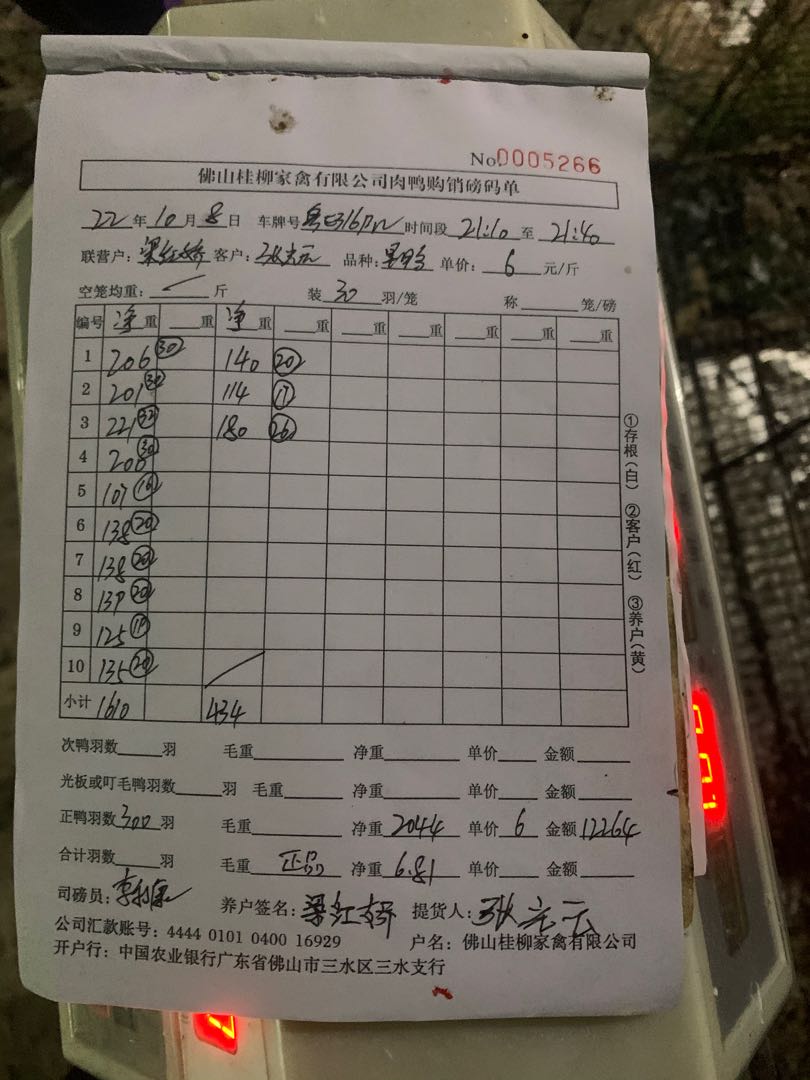 No.0005266
佛山桂柳家禽有限公司肉鸭购销磅码单
22年10月8日 车牌号 时间段 21:10 至 21:40
联营户：梁红娇 客户：张元云 品种： 单价：6 元/斤
空笼均重： 斤 装 30 羽/笼 称 笼/磅
编号 净重 重 净重 重 重 重 重 重 重
1 206 30 140 20
2 201 30 114 17
3 221 32 180 26
4 30
5 107
6 138 20
7 138 20
8 137 20
9 125
10 135 20
小计 1610 434
①存根（白） ②客户（红） ③养户（黄）
次鸭羽数 羽 毛重 净重 单价 金额
光板或叮毛鸭羽数 羽 毛重 净重 单价 金额
正鸭羽数 300 羽 毛重 净重 2044 单价 6 金额 12264
合计羽数 羽 毛重 正品 净重 6.81 单价 金额
司磅员： 养户签名：梁红娇 提货人：张元云
公司汇款账号：4444 0101 0400 16929 户名：佛山桂柳家禽有限公司
开户行：中国农业银行广东省佛山市三水区三水支行